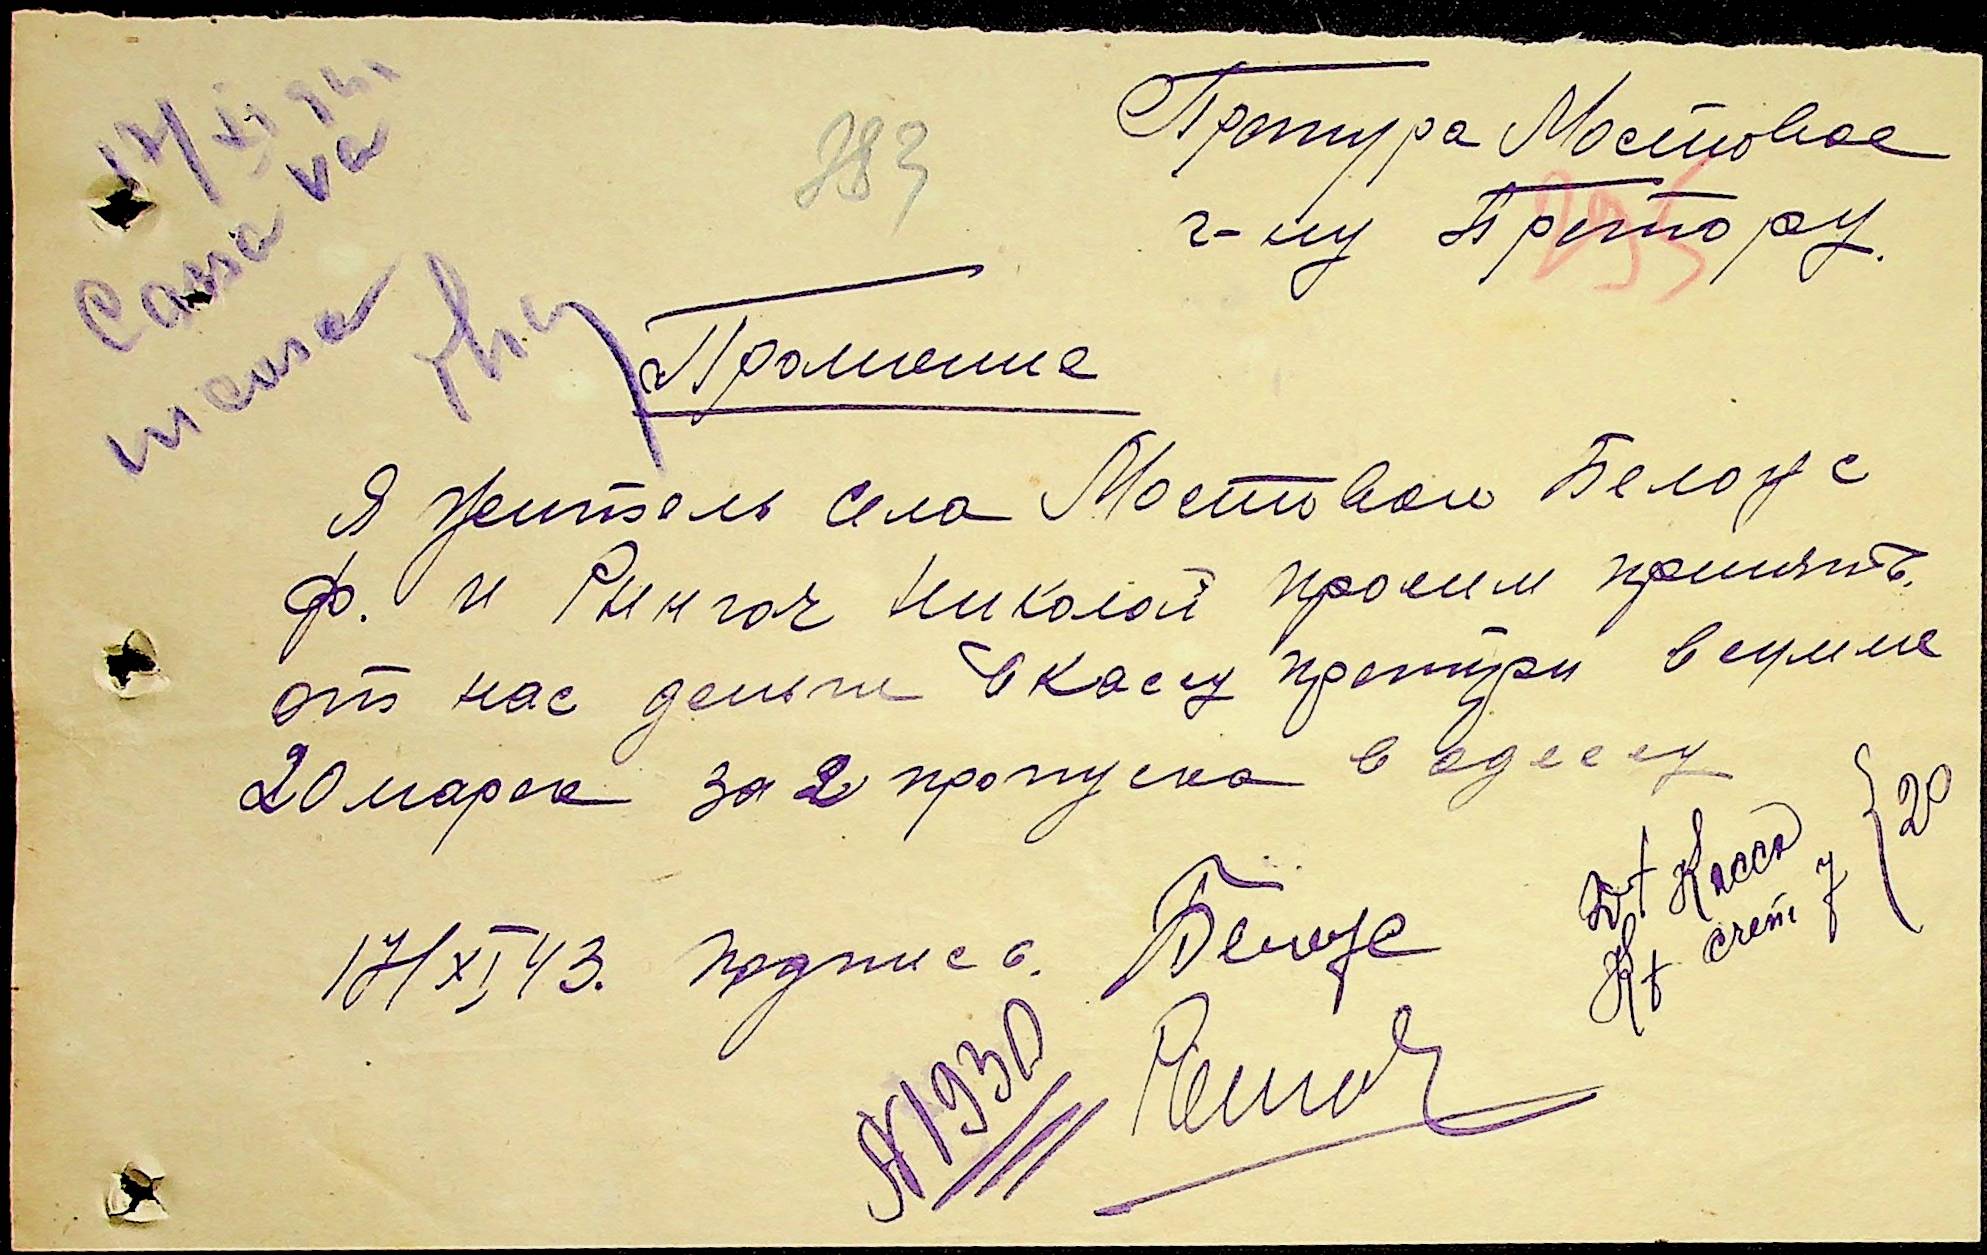 17/XI 943
Casa va
incasa
383
Претура Мостовое
г-ну Претору.
295
Прошение
Я житель села Мостовом Белоус
ф. и Рынгач Николай просим принять
от нас деньги в кассу претури в сумме
20 марок за 2 пропуска в одессу
Дт Касса
Кт счет 7
} 20
17/XI 43. подпись. Белоус
N 1930